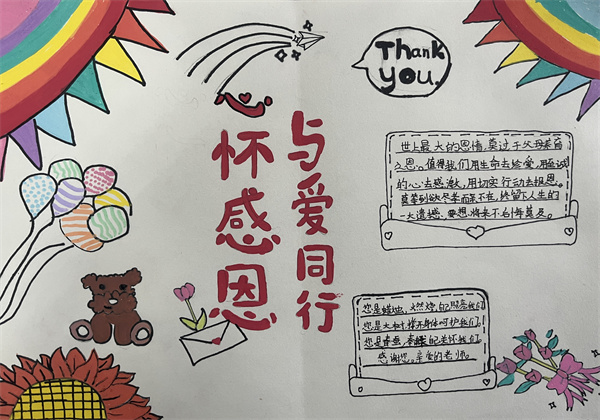 Thank
you.
心怀感恩
与爱同行
世上最大的恩情,莫过于父母养育
之恩。值得我们用生命去珍爱,用至诚
的心去感激,用切实行动去报恩。
莫等到欲尽孝而亲不在,终留下人生的
一大遗憾,要想将来不后悔莫及。
您是蜡烛,燃烧自己照亮我们
您是大树撑开身体呵护我们
您是春蚕,奉献自己关怀我们
感谢您。亲爱的老师。